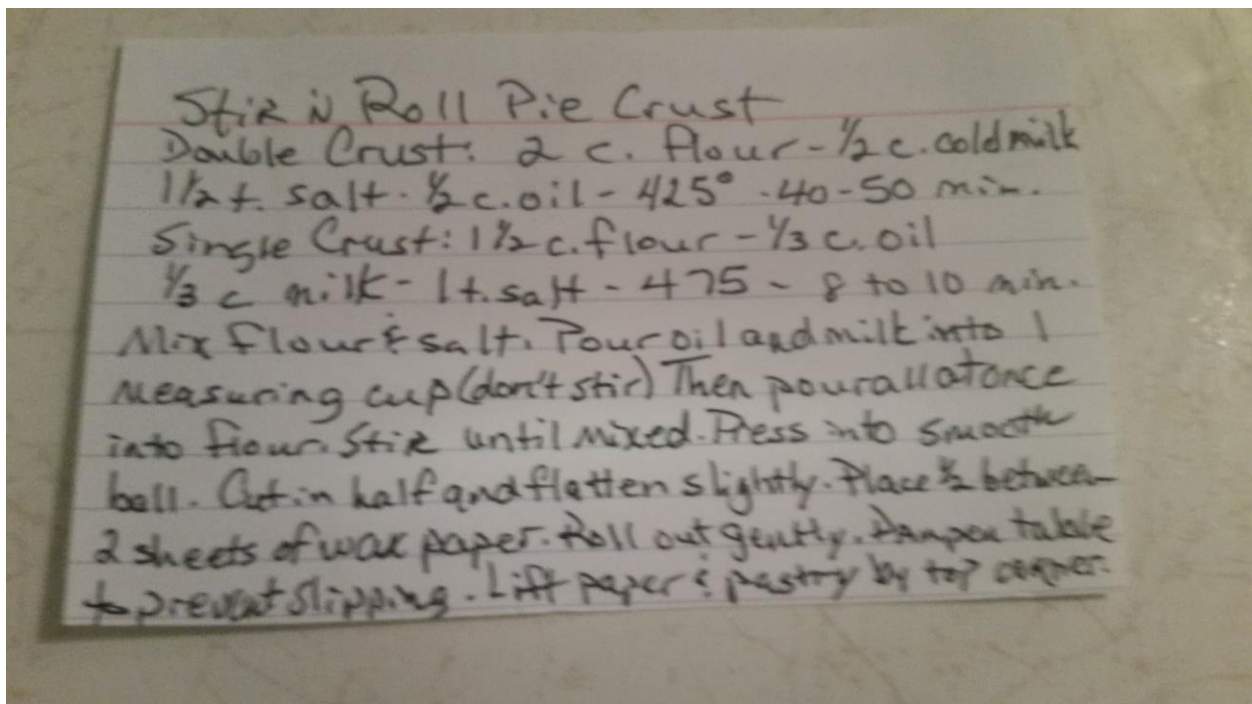 Stir N Roll Pie Crust
Double Crust: 2 c. flour - 1/2 c. cold milk
1 1/2 t. salt - 1/2 c. oil - 425° - 40-50 min.
Single Crust: 1 1/2 c. flour - 1/3 c. oil
1/3 c milk - 1 t. salt - 475 - 8 to 10 min.
Mix flour & salt. Pour oil and milk into 1
measuring cup (don't stir) Then pour all at once
into flour. Stir until mixed. Press into smooth
ball. Cut in half and flatten slightly. Place 1/2 between
2 sheets of wax paper. Roll out gently. Dampen table
to prevent slipping. Lift paper & pastry by top corner.